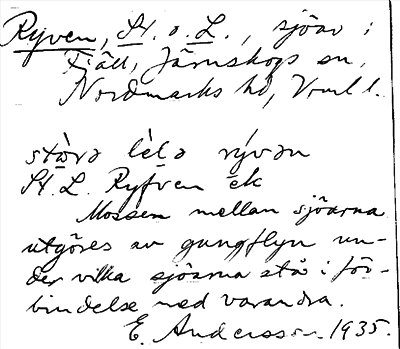 Ryven, St. o. L., sjöar i
Fjäll, Järnskogs sn,
Nordmarks hd, Vrml l.
stòra lèlə rývən
St. L. Ryfven ek
Mossen mellan sjöarna
utgöres av gungflyn un-
der vilka sjöarna stå i för-
bindelse med varandra.
E. Andersson 1935.